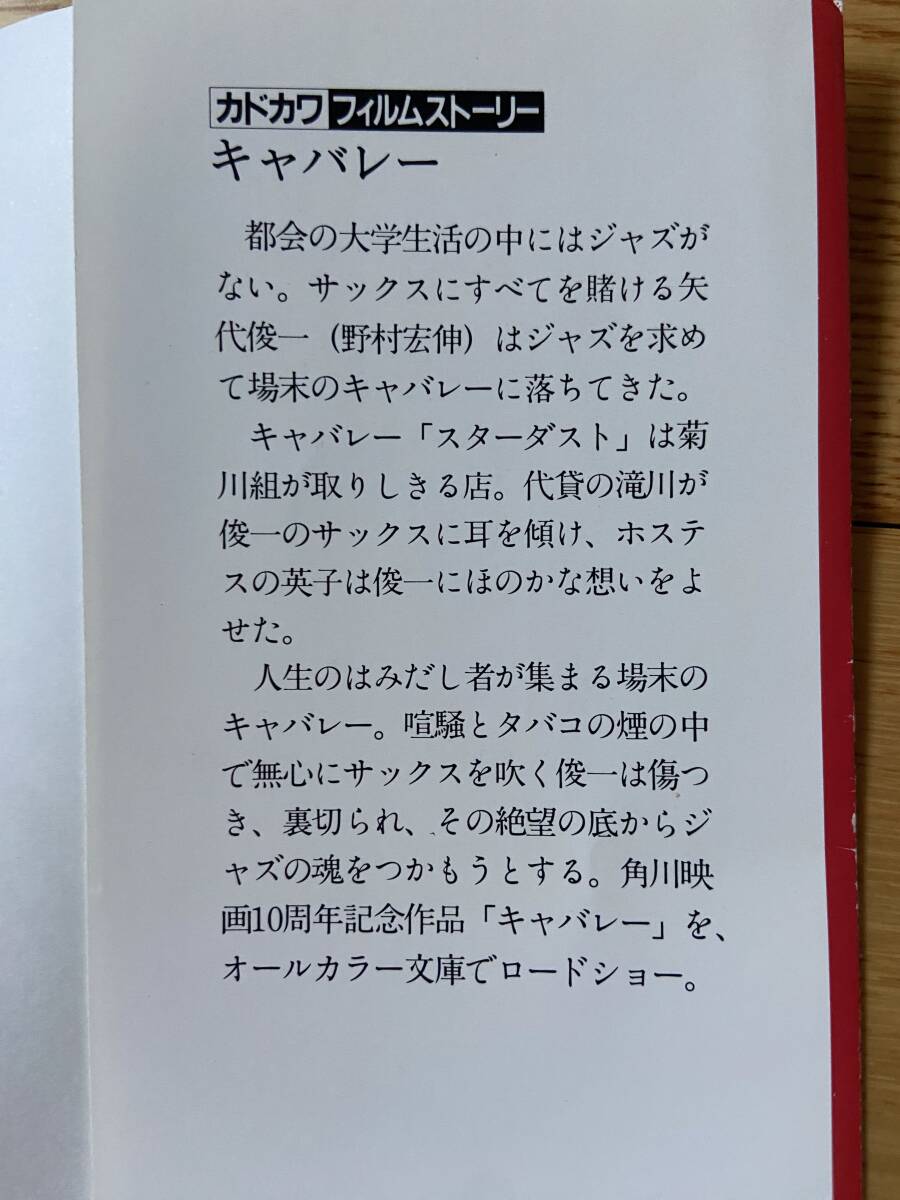 カドカワフィルムストーリー
キャバレー
都会の大学生活の中にはジャズが
ない。サックスにすべてを賭ける矢
代俊一（野村宏伸）はジャズを求め
て場末のキャバレーに落ちてきた。
キャバレー「スターダスト」は菊
川組が取りしきる店。代貸の滝川が
俊一のサックスに耳を傾け、ホステ
スの英子は俊一にほのかな想いをよ
せた。
人生のはみだし者が集まる場末の
キャバレー。喧騒とタバコの煙の中
で無心にサックスを吹く俊一は傷つ
き、裏切られ、その絶望の底からジ
ャズの魂をつかもうとする。角川映
画10周年記念作品「キャバレー」を、
オールカラー文庫でロードショー。